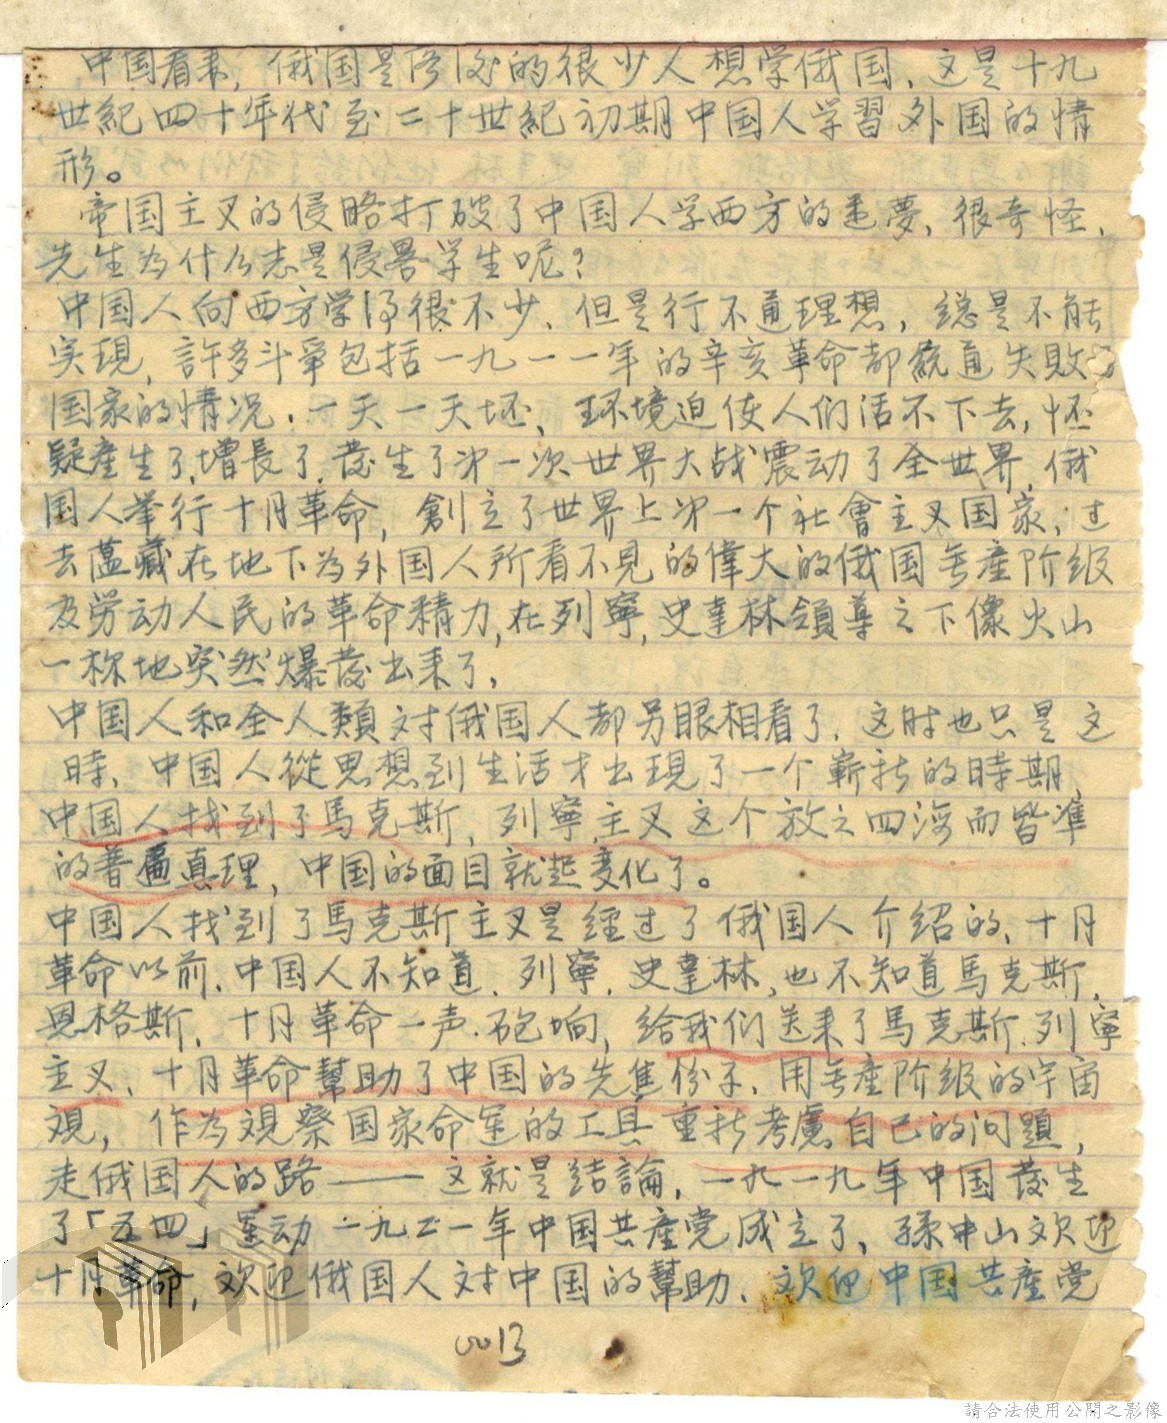 中国看来，俄国是落后的很少人想学俄国，这是十九
世紀四十年代至二十世紀初期中国人学習外国的情
形。
帝国主义的侵略打破了中国人学西方的迷夢，很奇怪，
先生为什么志是侵畧学生呢？
中国人向西方学得很不少，但是行不通理想，總是不能
实現，許多斗爭包括一九一一年的辛亥革命都統通失敗了
国家的情况，一天一天坯、环境迫使人们活不下去，怀
疑産生了，增長了，發生了第一次世界大战震动了全世界，俄
国人举行十月革命，創立了世界上第一个社會主义国家，过
去蕴藏在地下为外国人所看不見的偉大的俄国無産阶级
及劳动人民的革命精力，在列寧，史達林領導之下像火山
一樣地突然爆發出来了，
中国人和全人類对俄国人都另眼相看了，这时也只是这
時，中国人從思想到生活才出現了一个嶄新的時期
中国人找到了馬克斯，列寧，主义这个放之四海而皆準
的普遍真理，中国的面目就起变化了。
中国人找到了馬克斯主义是經过了俄国人介紹的，十月
革命以前，中国人不知道，列寧，史達林，也不知道馬克斯，
恩格斯，十月革命一声砲响，给我们送来了馬克斯，列寧
主义，十月革命幫助了中国的先進份子，用無産阶级的宇宙
观，作为观察国家命運的工具重新考慮自已的问題，
走俄国人的路——这就是结論，一九一九年中国發生
了「五四」運动一九二一年中国共産党成立了，孫中山欢迎
十月革命，欢迎俄国人对中国的幫助，欢迎中国共産党
0013
請合法使用公開之影像